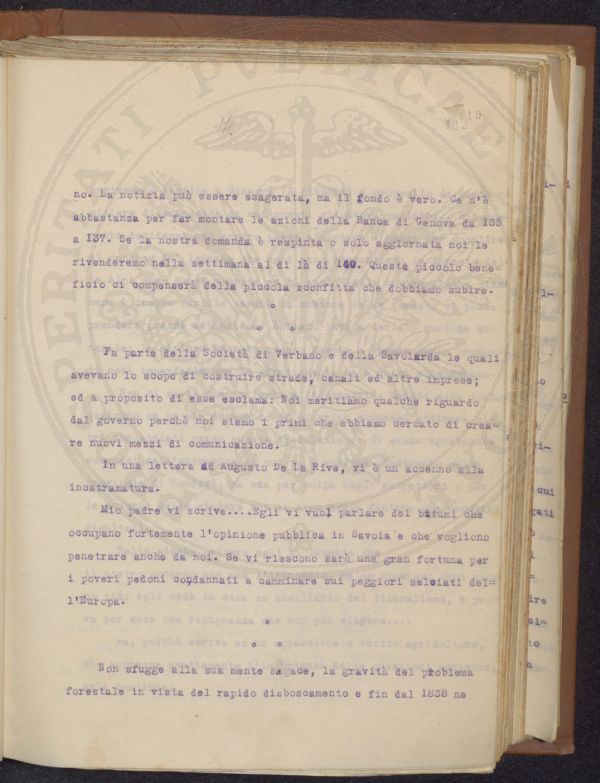 119
no. La notizia può essere esagerata, ma il fondo è vero. Ce n'è
abbastanza per far montare le azioni della Banca di Genova da 135
a 137. Se la nostra domanda è respinta o solo aggiornata noi le
rivenderemo nella settimana al di là di 140. Questo piccolo bene=
ficio ci compenserà della piccola sconfitta che dobbiamo subire.
Fa parte della Società di Verbano e della Savoiarda le quali
avevano lo scopo di costruire strade, canali ed altre imprese;
ed a proposito di esse esclama: Noi meritiamo qualche riguardo
dal governo perchè noi siamo i primi che abbiamo cercato di crea=
re nuovi mezzi di comunicazione.
In una lettera ad Augusto De La Rive, vi è un accenno alla
incatramatura.
Mio padre vi scrive....Egli vi vuol parlare dei bitumi che
occupano fortemente l'opinione pubblica in Savoia e che vogliono
penetrare anche da noi. Se vi riescono sarà una gran fortuna per
i poveri pedoni condannati a camminare sui peggiori selciati del=
l'Europa.
Non sfugge alla sua mente sagace, la gravità del problema
forestale in vista del rapido disboscamento e fin dal 1838 ne